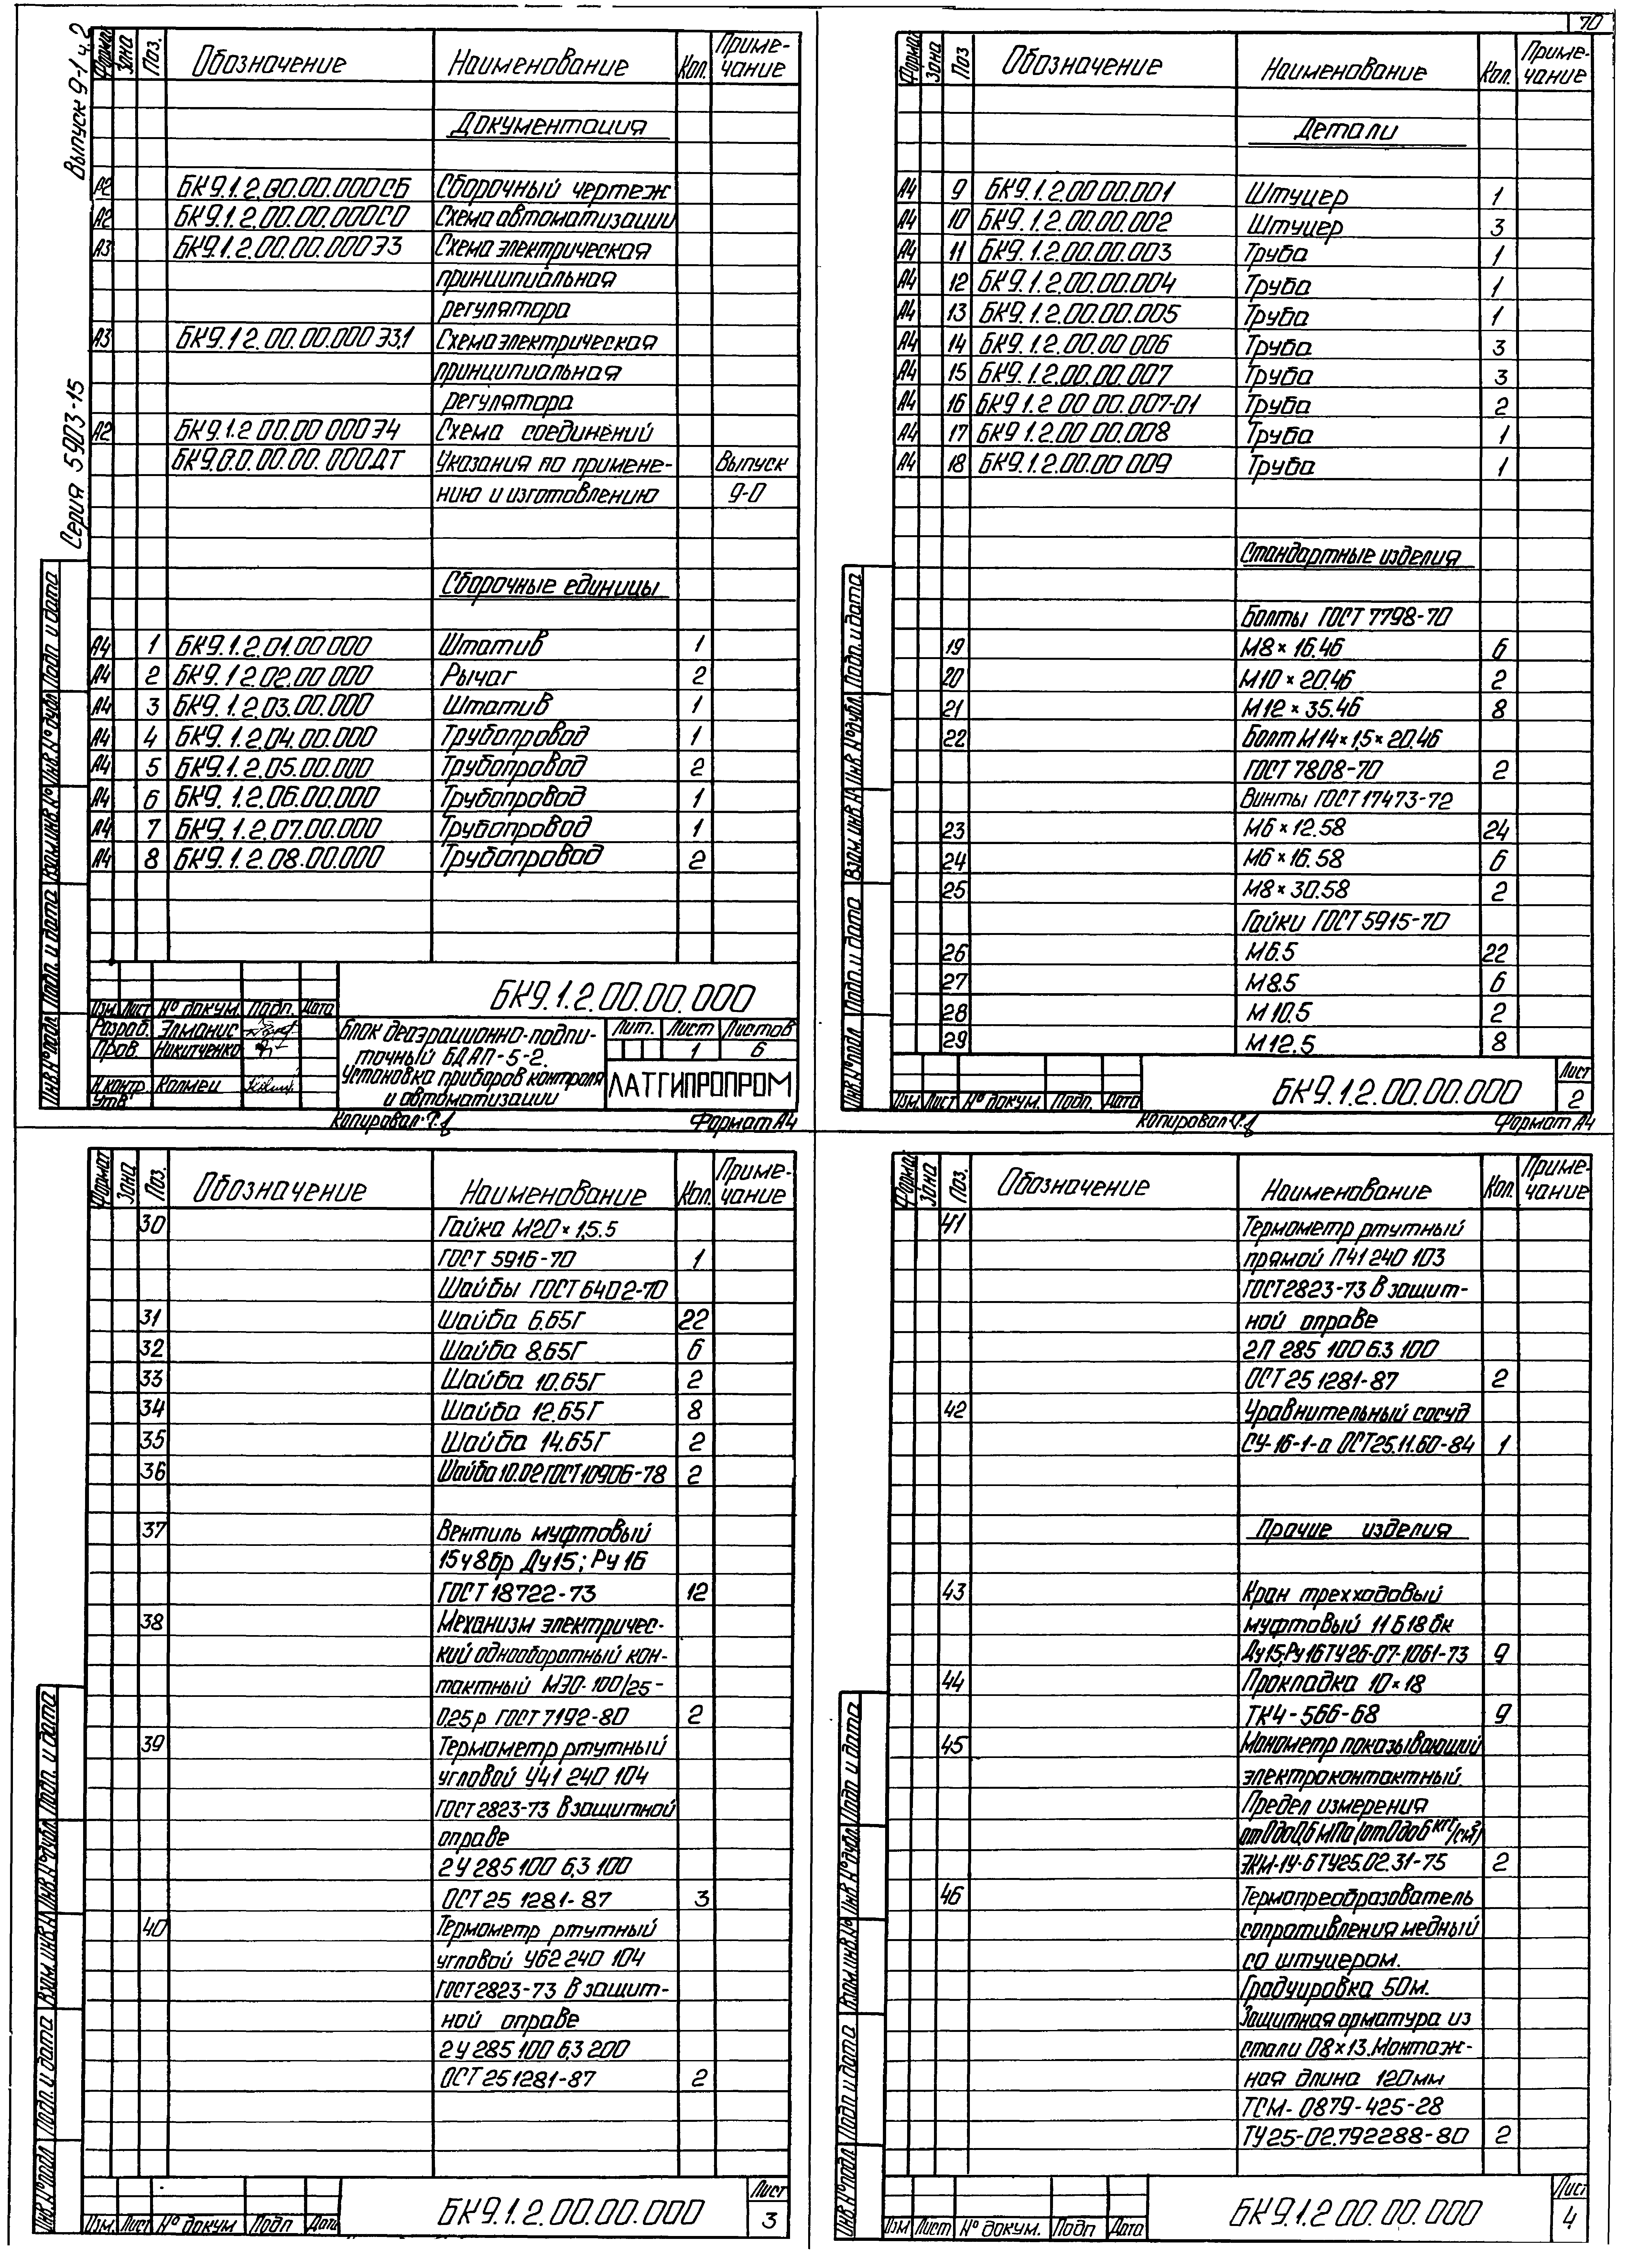 70
Выпуск 9-1 ч.2
Серия 5903-15
Формат Зона Поз. Обозначение Наименование Кол. Приме-
чание
Документация
А2 БК9.1.2.00.00.000СБ Сборочный чертеж
А2 БК9.1.2.00.00.000СО Схема автоматизации
А3 БК9.1.2.00.00.000Э3 Схема электрическая
принципиальная
регулятора
А3 БК9.1.2.00.00.000Э3.1 Схема электрическая
принципиальная
регулятора
А2 БК9.1.2 00.00 000Э4 Схема соединений
БК9.0.0.00.00.000ДТ Указания по примене- Выпуск
нию и изготовлению 9-0
Сборочные единицы
А4 1 БК9.1.2.01.00.000 Штатив 1
А4 2 БК9.1.2.02.00.000 Рычаг 2
А4 3 БК9.1.2.03.00.000 Штатив 1
А4 4 БК9.1.2.04.00.000 Трубопровод 1
А4 5 БК9.1.2.05.00.000 Трубопровод 2
А4 6 БК9.1.2.06.00.000 Трубопровод 1
А4 7 БК9.1.2.07.00.000 Трубопровод 1
А4 8 БК9.1.2.08.00.000 Трубопровод 2
Инв.№подл. Подп. и дата Взам.инв.№ Инв.№дубл. Подп. и дата
БК9.1.2.00.00.000
Изм Лист № докум. Подп. Дата
Разраб. Элманис
Пров. Никитченко
Н.контр. Калмец
Утв.
Блок деаэрационно-подпи-
точный БДАП-5-2.
Установка приборов контроля
и автоматизации
Лит. Лист Листов
1 6
ЛАТГИПРОПРОМ
Копировал Формат А4
Формат Зона Поз Обозначение Наименование Кол. Приме-
чание
Детали
А4 9 БК9.1.2.00.00.001 Штуцер 1
А4 10 БК9.1.2.00.00.002 Штуцер 3
А4 11 БК9.1.2.00.00.003 Труба 1
А4 12 БК9.1.2.00.00.004 Труба 1
А4 13 БК9.1.2.00.00.005 Труба 1
А4 14 БК9.1.2.00.00 006 Труба 3
А4 15 БК9.1.2.00.00.007 Труба 3
А4 16 БК9.1.2 00 00.007-01 Труба 2
А4 17 БК9.1.2.00 00.008 Труба 1
А4 18 БК9.1.2.00.00 009 Труба 1
Стандартные изделия
Болты ГОСТ 7798-70
19 М8×16.46 6
20 М10×20.46 2
21 М12×35.46 8
22 Болт М14×1,5×20.46
ГОСТ 7808-70 2
Винты ГОСТ 17473-72
23 М6×12.58 24
24 М6×16.58 6
25 М8×30.58 2
Гайки ГОСТ 5915-70
26 М6.5 22
27 М8.5 6
28 М10.5 2
29 М12.5 8
Инв.№подл. Подп. и дата Взам. инв.№ Инв.№дубл. Подп. и дата
Изм. Лист № докум. Подп. Дата
БК9.1.2.00.00.000
Лист
2
Копировал Формат А4
Формат Зона Поз. Обозначение Наименование Кол. Приме-
чание
30 Гайка М20×1,5.5
ГОСТ 5916-70 1
Шайбы ГОСТ 6402-70
31 Шайба 6.65Г 22
32 Шайба 8.65Г 6
33 Шайба 10.65Г 2
34 Шайба 12.65Г 8
35 Шайба 14.65Г 2
36 Шайба 10.02 ГОСТ 10906-78 2
37 Вентиль муфтовый
15ч8бр Ду15; Ру16
ГОСТ 18722-73 12
38 Механизм электричес-
кий однооборотный кон-
тактный МЭО-100/25-
0,25р ГОСТ 7192-80 2
39 Термометр ртутный
угловой У41 240 104
ГОСТ 2823-73 В защитной
оправе
2У 285 100 6,3 100
ОСТ 25 1281-87 3
40 Термометр ртутный
угловой У62 240 104
ГОСТ 2823-73 В защит-
ной оправе
2У 285 100 6,3 200
ОСТ 25 1281-87 2
Инв.№подл Подп. и дата Взам. инв.№ Инв.№дубл. Подп. и дата
Изм. Лист № докум Подп Дата
БК9.1.2.00.00.000
Лист
3
Формат Зона Поз. Обозначение Наименование Кол. Приме-
чание
41 Термометр ртутный
прямой П41 240 103
ГОСТ 2823-73 В защит-
ной оправе
2П 285 100 6.3 100
ОСТ 25 1281-87 2
42 Уравнительный сосуд
СУ-16-1-а ОСТ25.11.60-84 1
Прочие изделия
43 Кран трехходовый
муфтовый 11Б18бк
Ду15; Ру16 ТУ26-07-1061-73 9
44 Прокладка 10×18
ТК4-566-68 9
45 Манометр показывающий
электроконтактный.
Предел измерения
от 0 до 0,6 МПа (от 0 до 6 кгс/см²)
ЭКМ-1У-6 ТУ25.02.31-75 2
46 Термопреобразователь
сопротивления медный
со штуцером.
Градуировка 50м.
Защитная арматура из
стали 08×13. Монтаж-
ная длина 120мм
ТСМ-0879-425-28
ТУ25-02.792288-80 2
Инв.№подл. Подп и дата Взам.инв.№ Инв.№дубл. Подп. и дата
Изм Лист № докум. Подп Дата
БК9.1.2 00.00.000
Лист
4